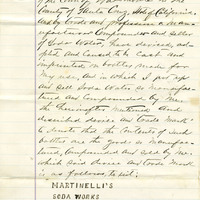 County of Santa Cruz, State of California
and by trade and profession a Manu-
facturer Compounder and Seller
of Soda Water, have devised, ado-
pted and caused to be cast and
imprinted on bottles made for
my use, and in which I put up
and sell Soda Water so Manufac-
tured and Compounded by me,
the hereinafter mentioned and
described device and Trade Mark
to denote that the Contents of such
bottles are the goods so manufac-
tured, Compounded and sold by me,
which said device and Trade Mark
is as follows, to wit:
MARTINELLI'S
SODA WORKS